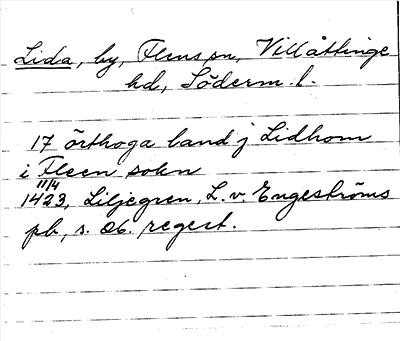 Lida, by, Flens sn, Villåttinge
hd, Söderm. l.
17 örthoga land j Lidhom
i Fleen sokn
11/4
1423, Liljegren, L. v. Engeströms
pb, s. 06. regest.